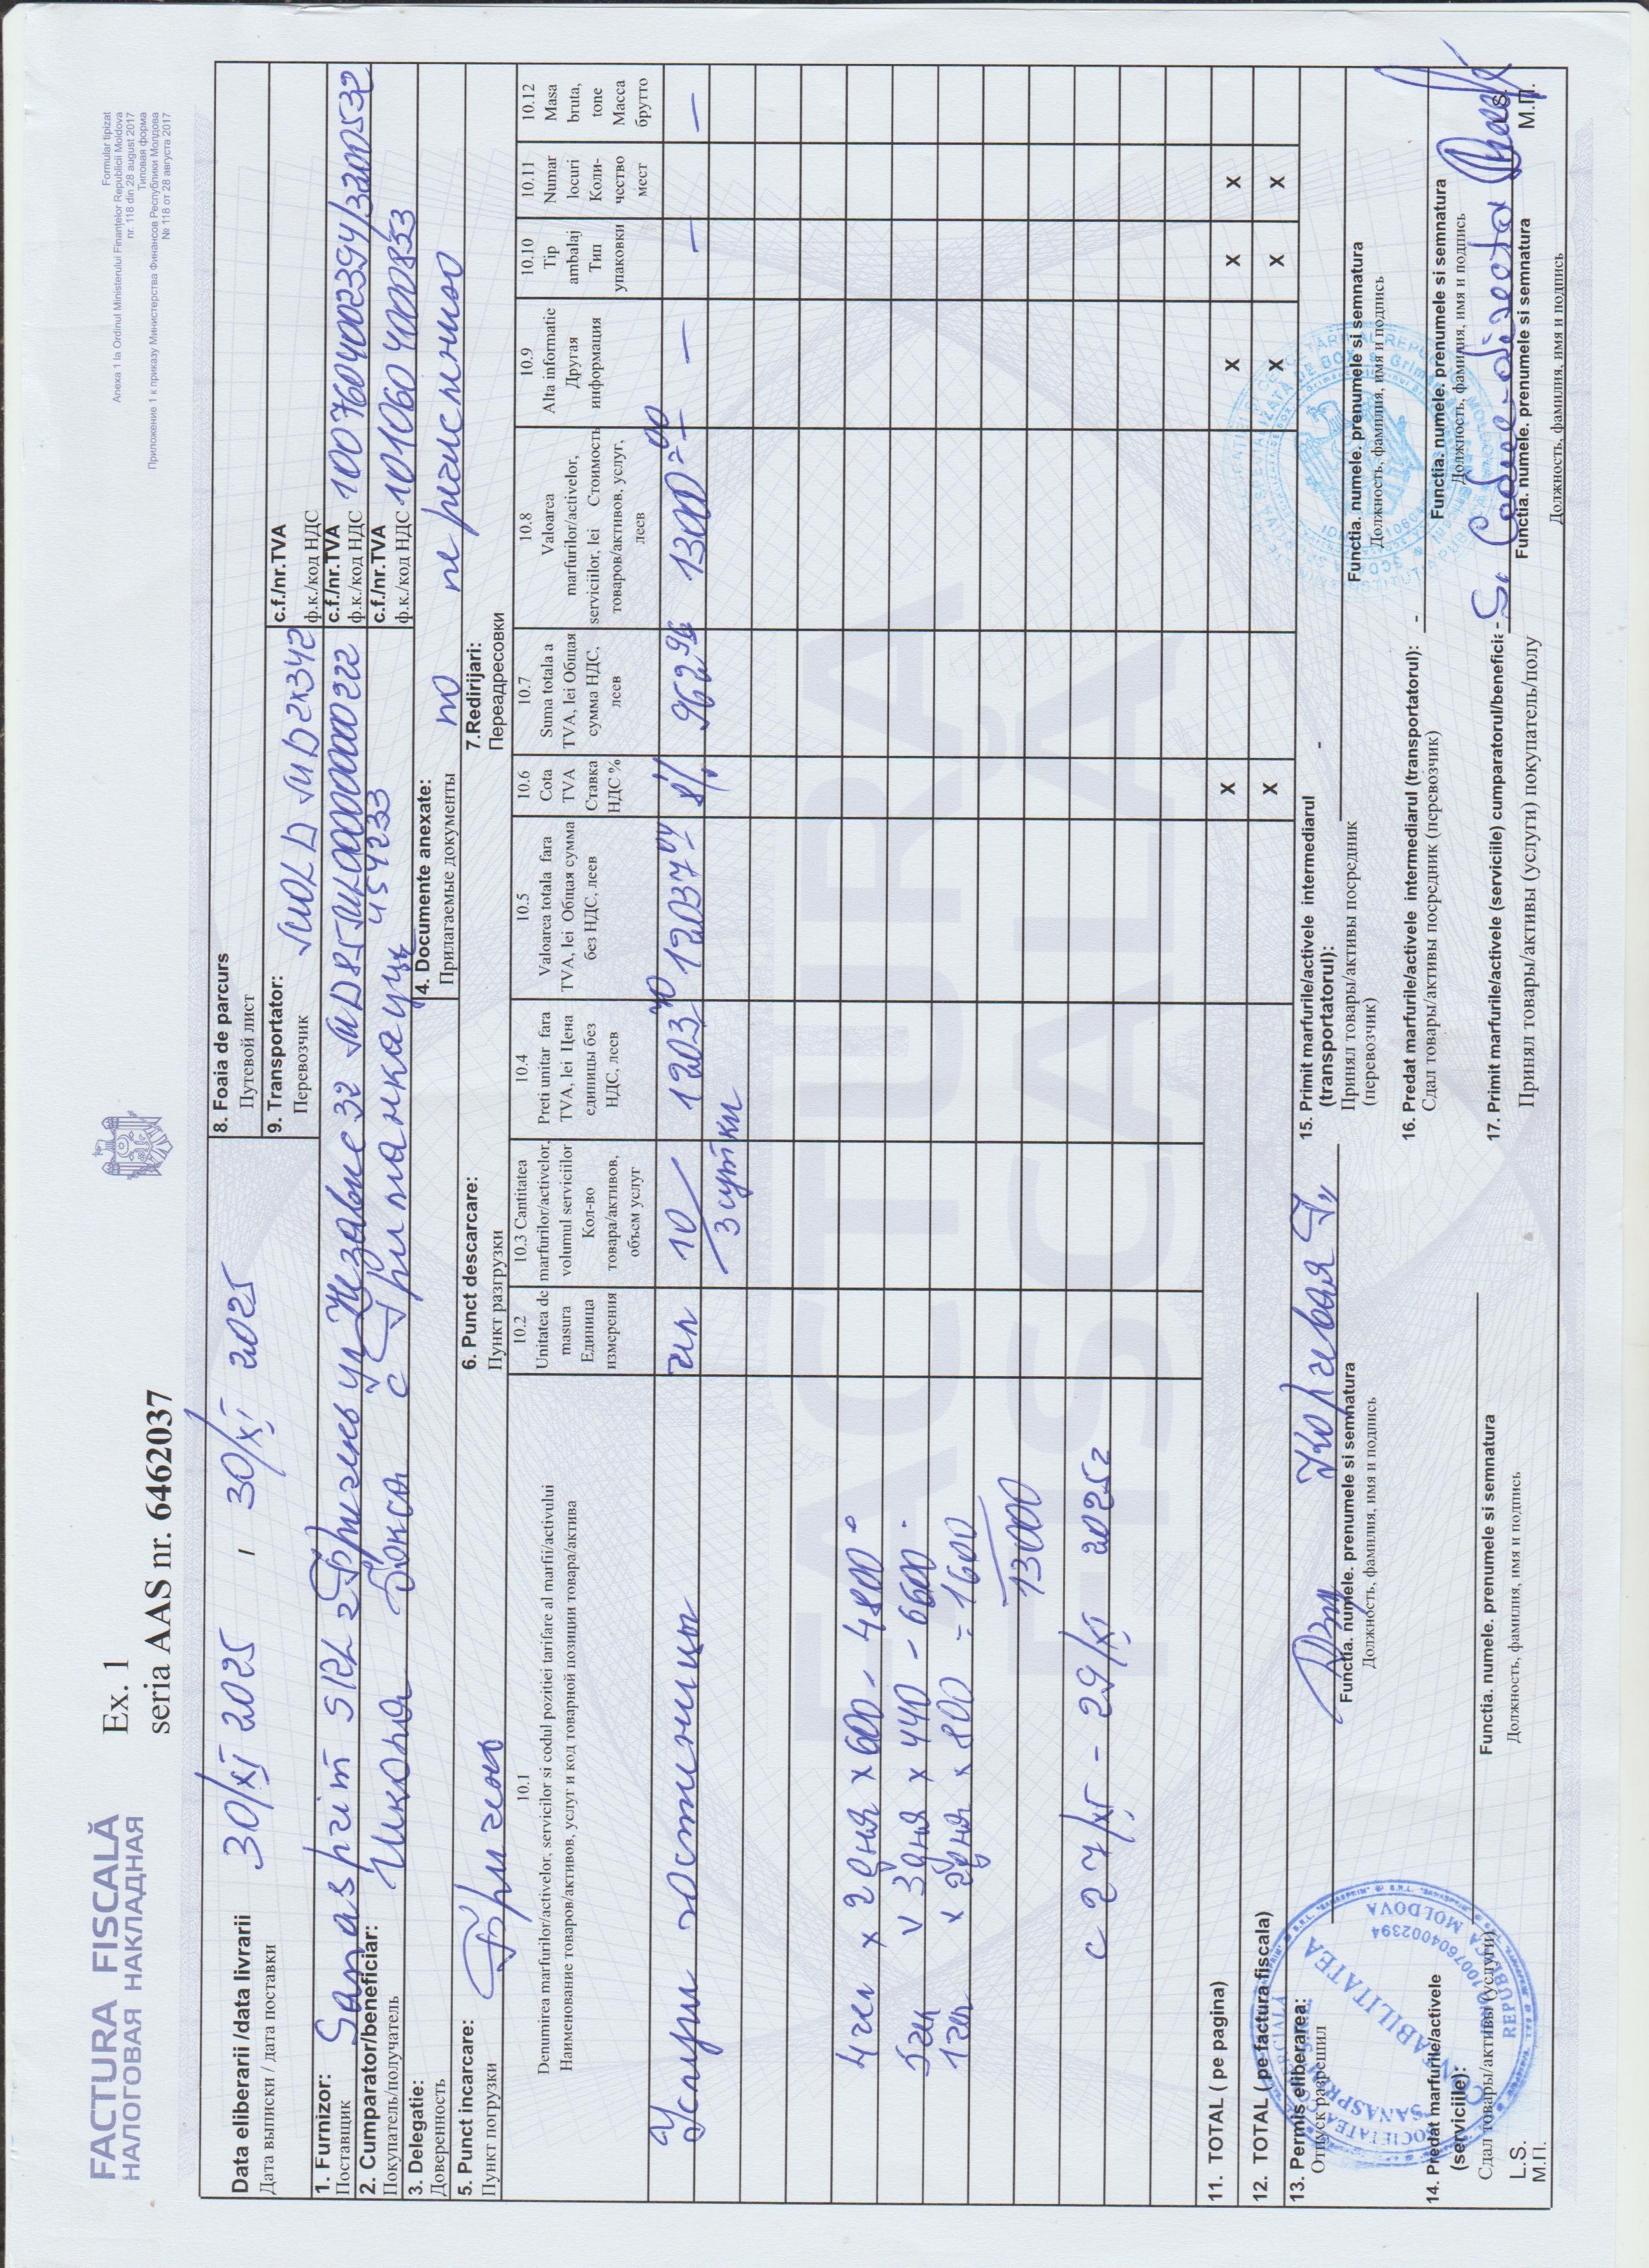 Formular tipizat
Anexa 1 la Ordinul Ministerului Finanțelor Republicii Moldova
nr. 118 din 28 august 2017
Типовая форма
Приложение 1 к приказу Министерства Финансов Республики Молдова
№ 118 от 28 августа 2017
FACTURA FISCALĂ
НАЛОГОВАЯ НАКЛАДНАЯ
Ex. 1
seria AAS nr. 6462037
Data eliberarii /data livrarii
Дата выписки / дата поставки
30/XI 2025 , 30/XI 2025
8. Foaia de parcurs
Путевой лист
9. Transportator:
Перевозчик
c.f./nr.TVA
ф.к./код НДС
1. Furnizor:
Поставщик
Sanasprim SRL
c.f./nr.TVA
ф.к./код НДС
1007604002394/
2. Cumparator/beneficiar:
Покупатель/получатель
Школа бокса с Гриманкауць
c.f./nr.TVA
ф.к./код НДС
3. Delegatie:
Доверенность
4. Documente anexate:
Прилагаемые документы
по перечислению
5. Punct incarcare:
Пункт погрузки
6. Punct descarcare:
Пункт разгрузки
7.Redirijari:
Переадресовки
10.1
Denumirea marfurilor/activelor, servicilor si codul pozitiei tarifare al marfii/activului
Наименование товаров/активов, услуг и код товарной позиции товара/актива
10.2
Unitatea de masura
Единица измерения
10.3 Cantitatea marfurilor/activelor, volumul serviciilor
Кол-во товара/активов, объем услуг
10.4
Preti unitar fara TVA, lei Цена единицы без НДС, леев
10.5
Valoarea totala fara TVA, lei Общая сумма без НДС, леев
10.6
Cota TVA
Ставка НДС %
10.7
Suma totala a TVA, lei Общая сумма НДС, леев
10.8
Valoarea marfurilor/activelor, serviciilor, lei Стоимость товаров/активов, услуг, леев
10.9
Alta informatie
Другая информация
10.10
Tip ambalaj
Тип упаковки
10.11
Numar locuri
Коли-чество мест
10.12
Masa bruta, tone
Масса брутто
Услуги гостиницы чел 10 1203 70 12037 04 8% 962 96 13000=00 — — —
3 сутки
4 чел x 2 дня x 600 - 4800
5 чел x 3 дня x 440 - 6600
1 чел x 2 дня x 800 = 1600
13000
с 27/XI - 29/XI 2025г
11. TOTAL ( pe pagina) X X X X
12. TOTAL ( pe factura fiscala) X X X X
13. Permis eliberarea:
Отпуск разрешил
Functia. numele. prenumele si semnatura
Должность, фамилия, имя и подпись
14. Predat marfurile/activele (serviciile):
Сдал товары/активы (услуги)
Functia. numele. prenumele si semnatura
Должность, фамилия, имя и подпись
L.S.
М.П.
15. Primit marfurile/activele intermediarul (transportatorul): -
Принял товары/активы посредник (перевозчик)
Functia. numele. prenumele si semnatura
Должность, фамилия, имя и подпись
16. Predat marfurile/activele intermediarul (transportatorul): -
Сдал товары/активы посредник (перевозчик)
Functia. numele. prenumele si semnatura
Должность, фамилия, имя и подпись
17. Primit marfurile/activele (serviciile) cumparatorul/benefici -
Принял товары/активы (услуги) покупатель/полу
Functia. numele. prenumele si semnatura
Должность, фамилия, имя и подпись
L.S.
М.П.
SOCIETATEA COMERCIALĂ
CONTABILITATEA
REPUBLICA MOLDOVA
1007604002394
FACTURĂ
FISCALĂ